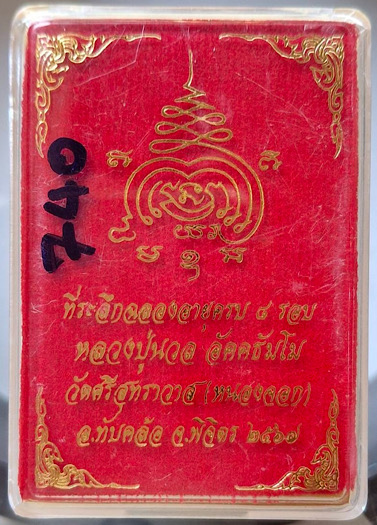 740
ที่ระลึกฉลองอายุครบ ๘ รอบ
หลวงปู่นวล อัคคธัมโม
วัดศรีสุทธาวาส (หนองจอก)
อ.ทับคล้อ จ.พิจิตร ๒๕๖๗